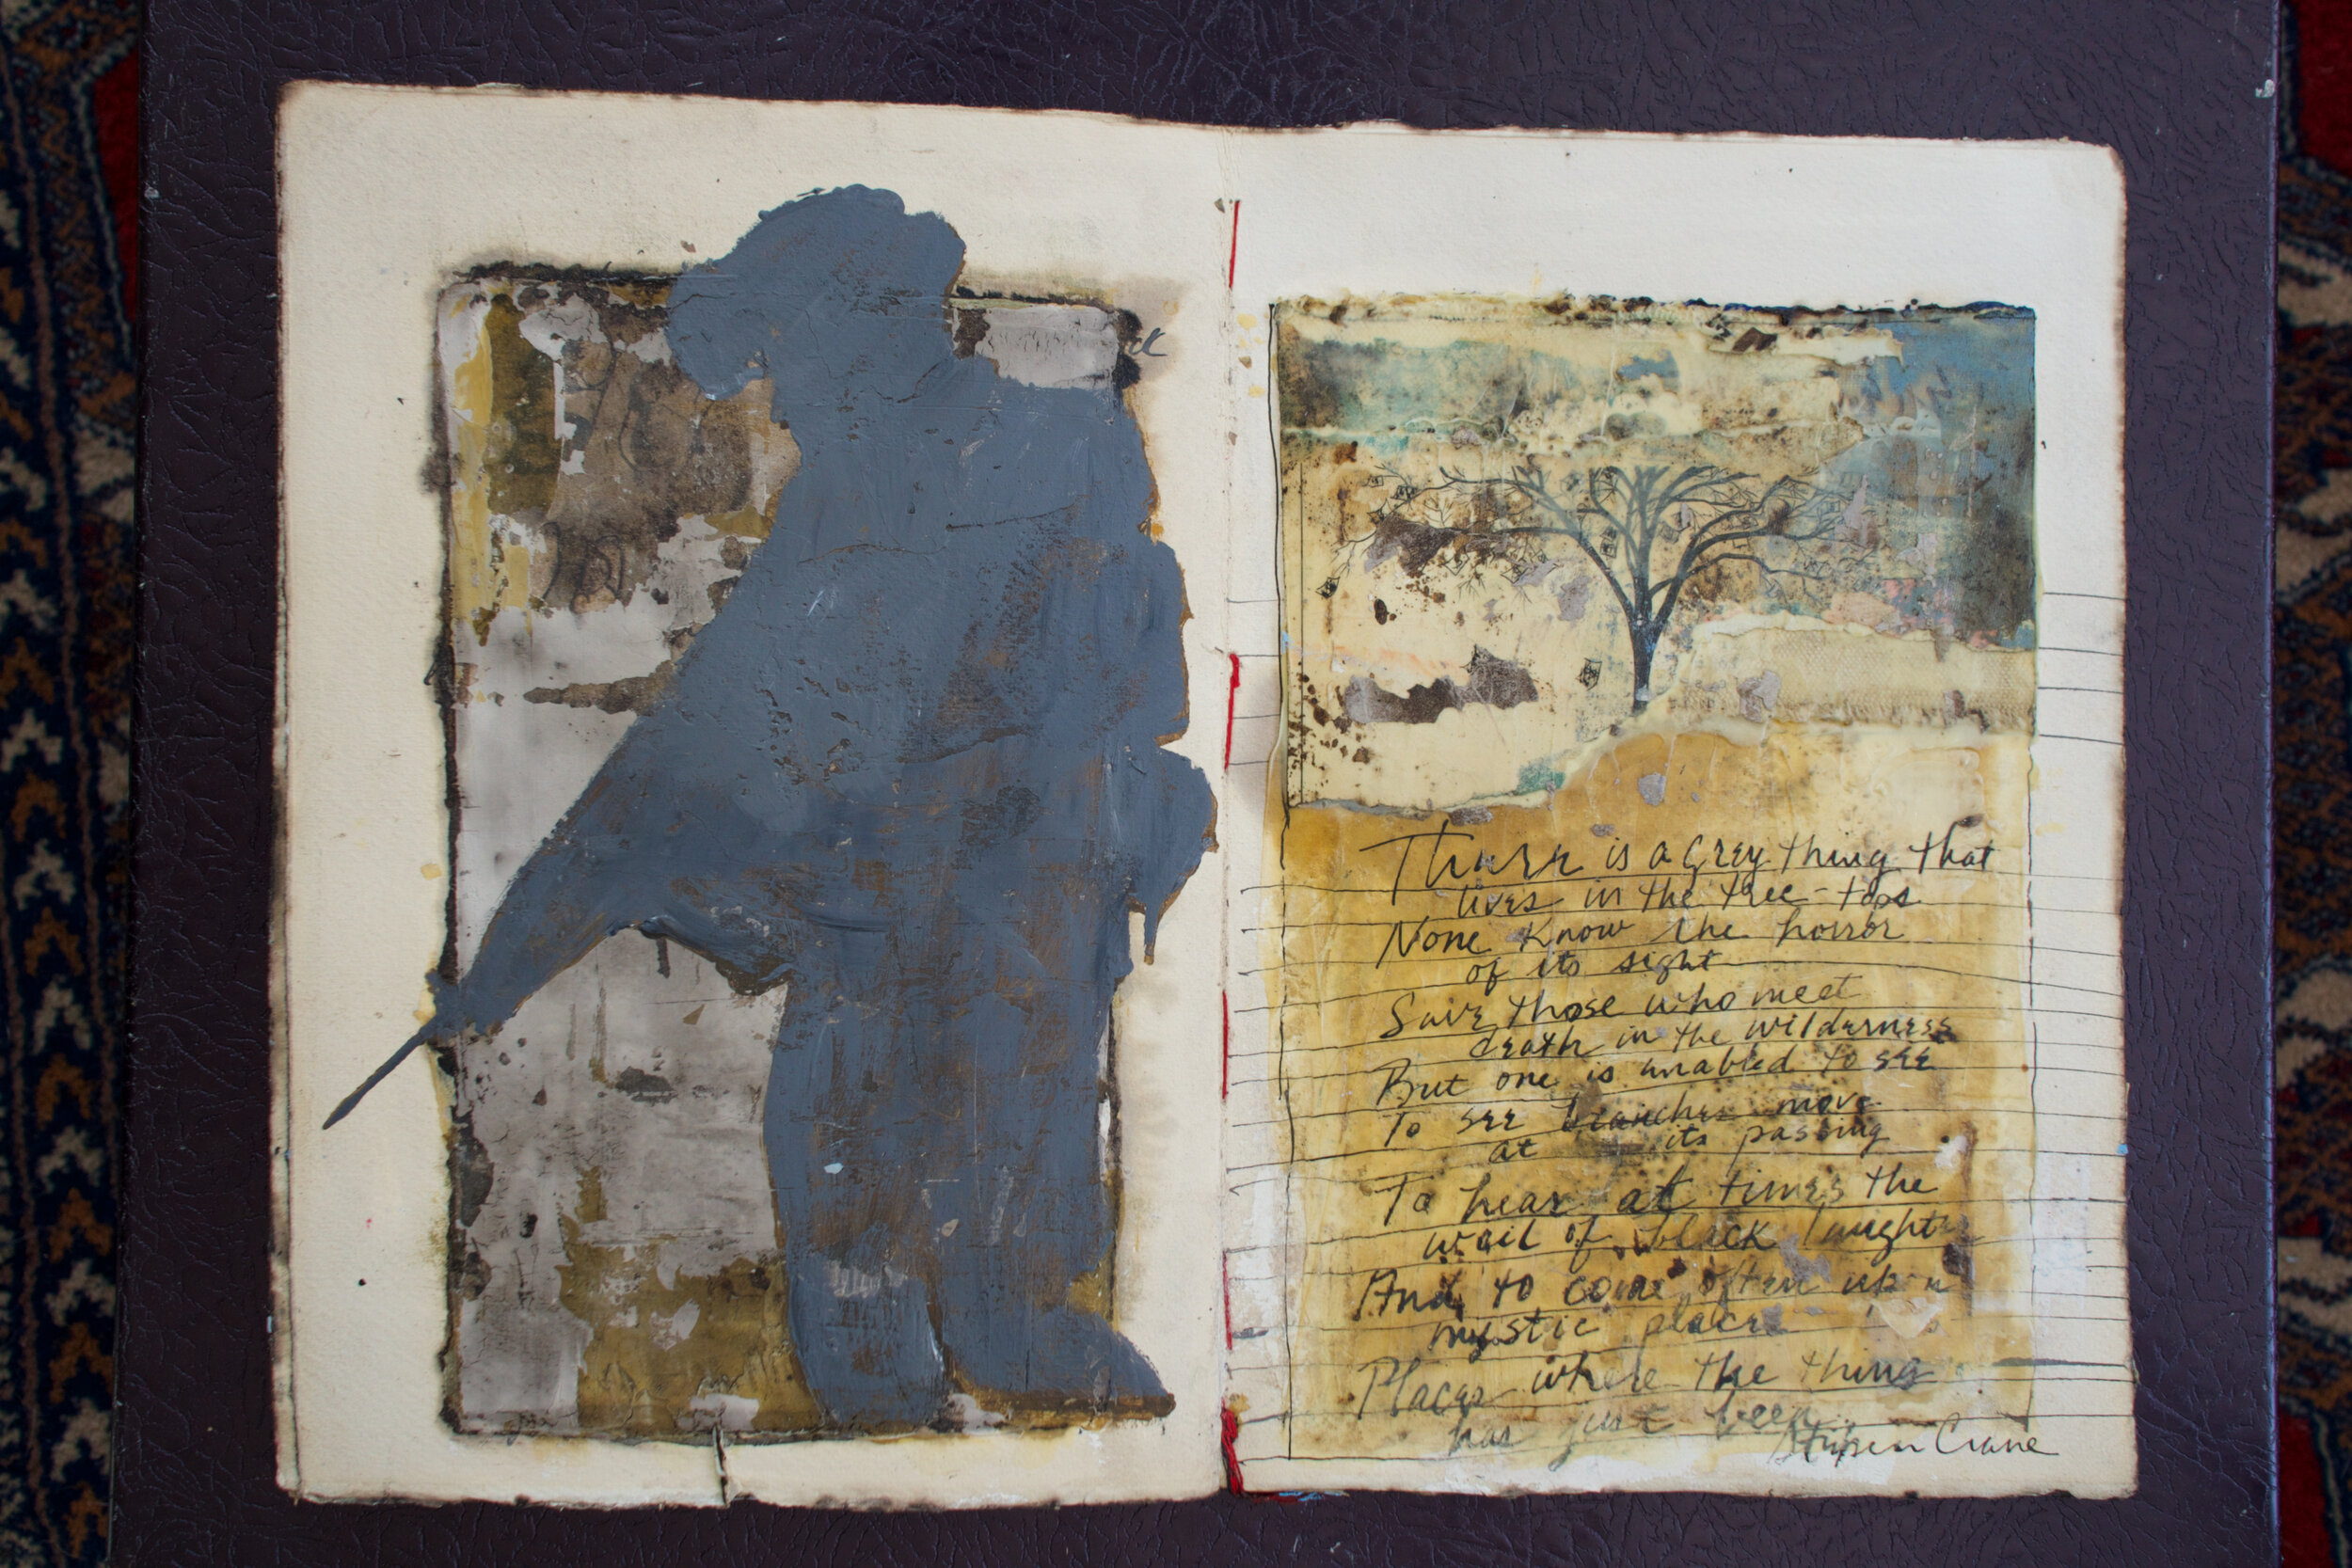 There is a Grey thing that
lives in the tree-tops
None know the horror
of its sight
Save those who meet
death in the wilderness
But one is unabled to see
To see branches move
at its passing
To hear at times the
wail of black laughter
And to come often upon
mystic places
Places where the thing
has just been
Stephen Crane